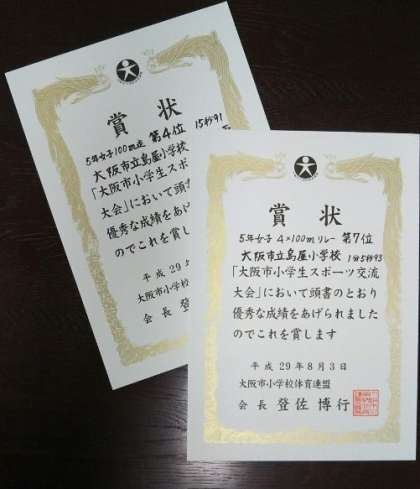 賞状
5年女子100m走 第4位 15秒91
大阪市立島屋小学校
「大阪市小学生スポ
大会」において頭書
優秀な成績をあげ
のでこれを賞し
平成29年
大阪市小学校
会長 登
賞状
5年女子 4×100mリレー 第7位
大阪市立島屋小学校 1分5秒93
「大阪市小学生スポーツ交流
大会」において頭書のとおり
優秀な成績をあげられました
のでこれを賞します
平成29年8月3日
大阪市小学校体育連盟
会長 登佐博行